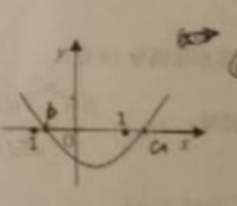 y
b
1
1 0 a x